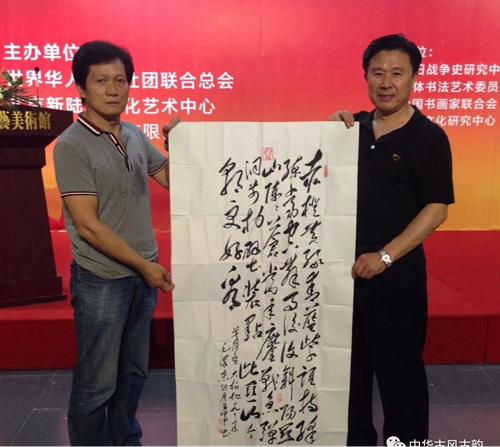 主办单位
世界华人 社团联合总会
新陆 化艺术中心
限
藝美術館
位:
日战争史研究中
体书法艺术委员
国书画家联合会
文化研究中心
赤橙黄绿青蓝紫谁持彩
练当空舞雨后复斜阳关
山阵阵苍当年鏖战急弹
洞前村壁装點此关山今
朝更好看
菩萨蛮大柏地
毛泽东
中华古风古韵